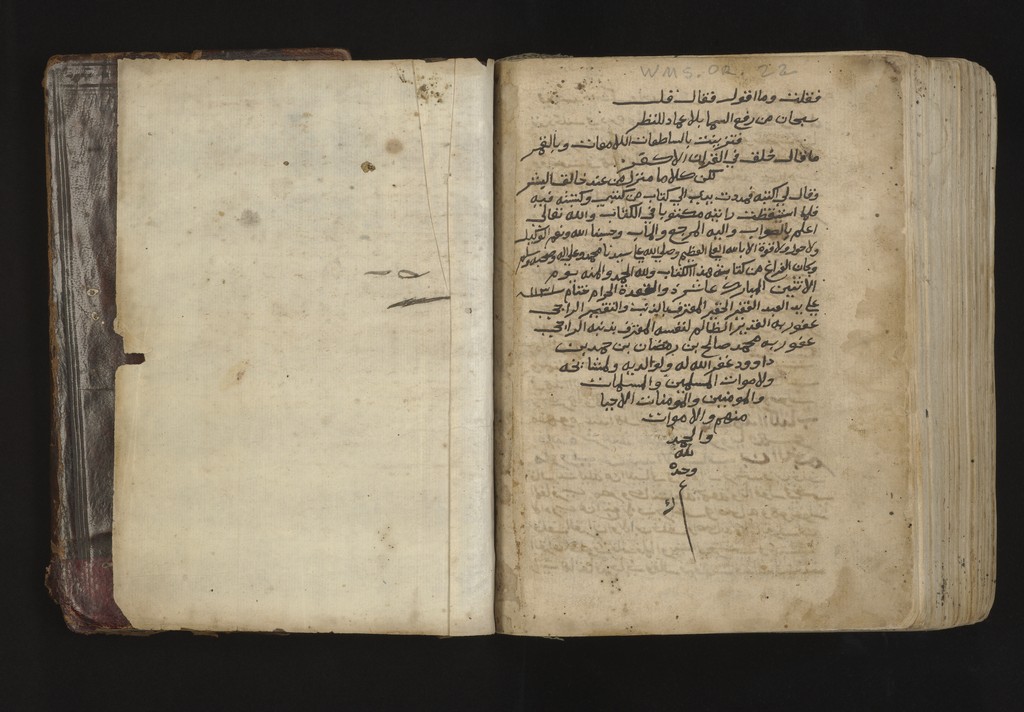 WMS. OR. 22
فقلت وما اقول فقال قل
سبحان من رفع السما بلا عماد للنظر
فتزينت بالساطعات اللامعات وبالقمر
ما قال خلق في القران
لكن كلاما منزلا من عند خالق البشر
وقال لي اكتبه فمددت يدي الي كتاب من كتبي وكتبته فيه
فلما استيقظت رايته مكتوبا في الكتاب والله تعالى
اعلم بالصواب واليه المرجع والماب وحسبنا الله ونعم الوكيل
ولا حول ولا قوة الا بالله العلي العظيم وصلي الله علي سيدنا محمد وعلي اله وصحبه وسلم
وكان الفراغ من كتابة هذا الكتاب ولله الحمد والمنه يوم
الاثنين المبارك عاشر ذو القعدة الحرام ختام
علي يد العبد الفقير الحقير المعترف بالذنب والتقصير الراجي
عفو ربه القدير الظالم لنفسه المعترف بذنبه الراجي
عفو ربه محمد صالح بن رمضان بن حمد بن
داوود غفر الله له ولوالديه ولمشائخه
ولاموات المسلمين والمسلمات
والمومنين والمومنات الاحيا
منهم والاموات
والحمد
لله
وحده